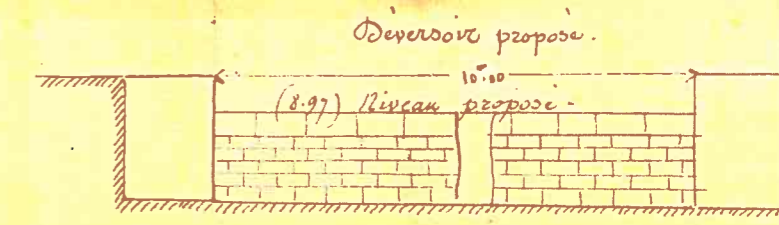 Déversoir proposé.
10ᵐ00
(8.97) Niveau proposé.